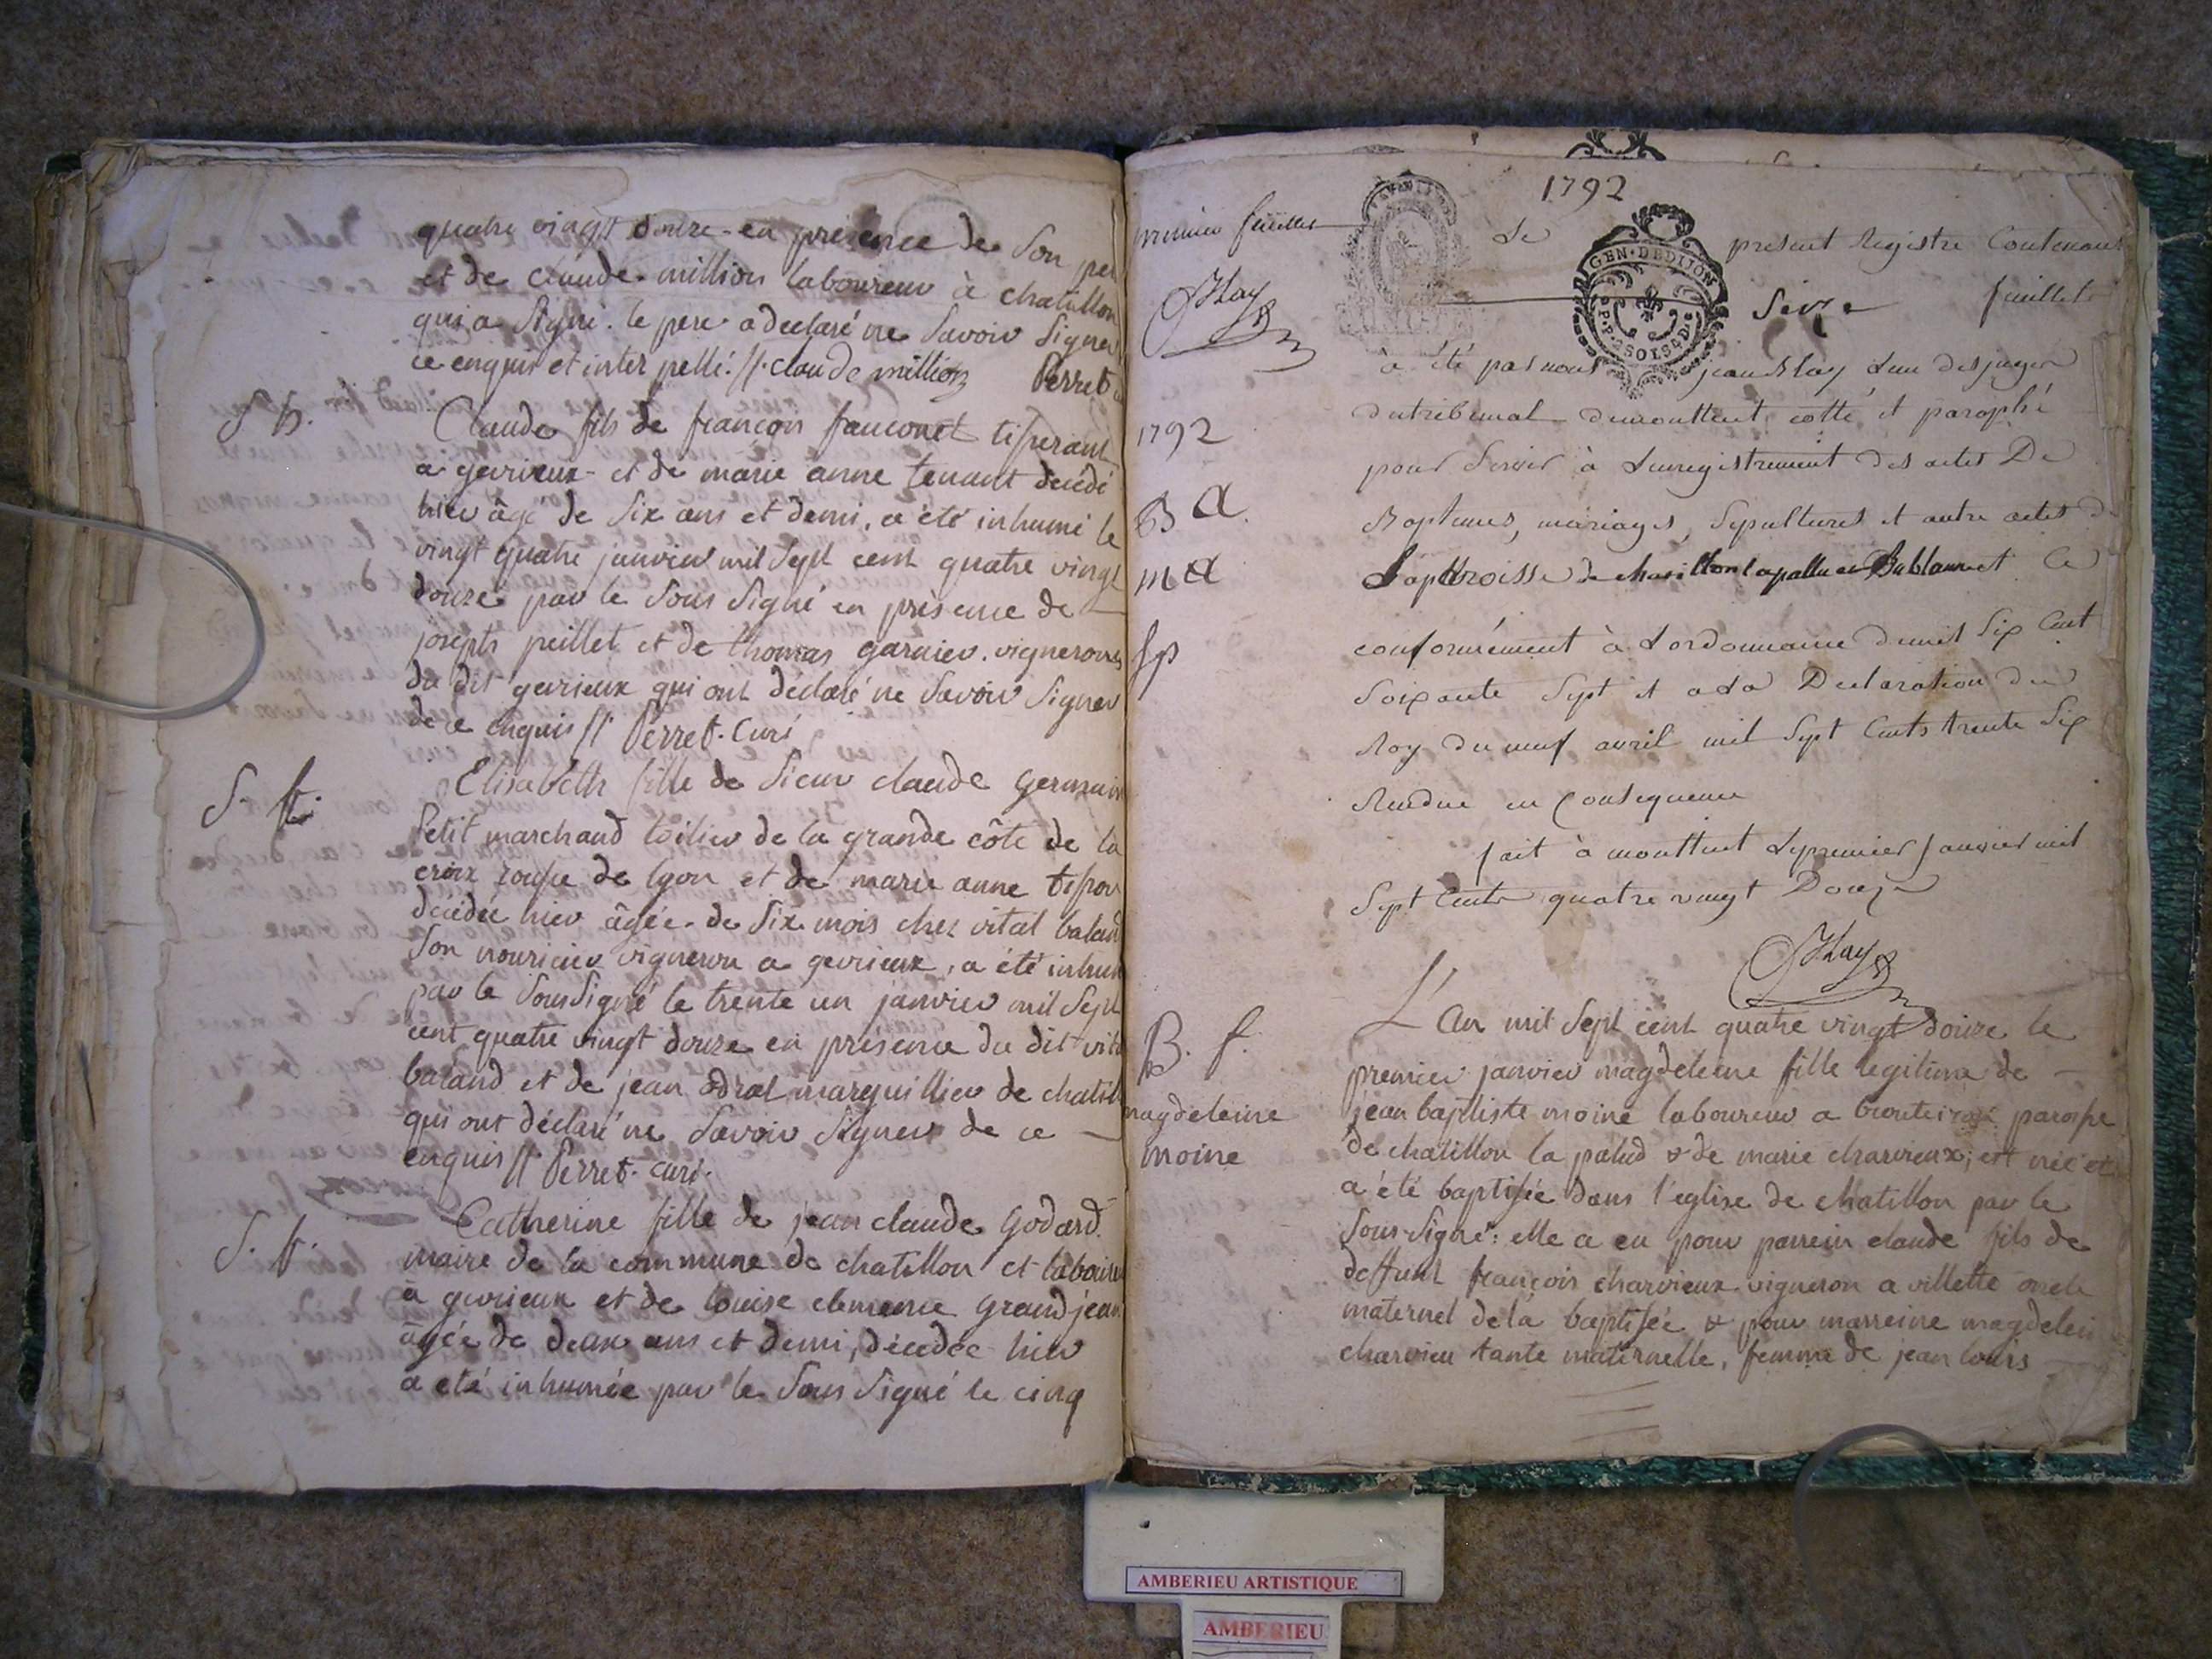 quatre vingt douze en présence de Son per
et de claude million laboureur à chatillon
qui a Signé. le pere a declaré ne Savoir Signer
ce enquis et interpellé. //. claude million Perret
S h.
Claude fils de françois fauconet tisserant
a gevrieux et de marie anne tenant décédé
hier âgé de Six ans et demi, a été inhumé le
vingt quatre janvier mil Sept cent quatre vingt
douze par le Sous Signé en présence de
joseph peillet et de thomas garnier. vignerons
du dit gevrieux qui ont déclaré ne Savoir Signer
de ce enquis // Perret. Curé
S. f.
Elisabeth fille de Sieur claude Germain
Petit marchand toilier de la grande côte de la
croix rousse de lyon et de marie anne
décédée hier âgée de Six mois chez vital baland
Son nouricier vigneron a gevrieux, a été inhum
par le SousSigné le trente un janvier mil Sept
cent quatre vingt douze en présence du dit vit
baland et de jean odrat marguillier de chatill
qui ont déclaré ne Savoir Signer de ce
enquis // Perret. curé.
S. f.
Catherine fille de jean claude Godard
maire de la commune de chatillon et laboure
à gevrieux et de louise clemence Grandjean
âgée de deux ans et demi, décédée hier
a été inhumée par le Sous Signé le cinq
1792
premier feuillet
Le present Registre Contenant
GEN. DE DIJON
Seize feuillets
à été par nous jean Slay Lun des juges
du tribunal de montluel cotté et paraphé
1792
pour Servir à Lenregistrement des actes De
B a.
Baptemes, mariages, Sepultures et autre actes d
m a
La parroisse de chatillon la pallu et Bublanne et Ce
Sp
conformément à Lordonnance de mil Six Cent
Soixante Sept et a La Declaration du
Roy du neuf avril mil Sept Cents trente Six
Rendue en Consequence
fait à montluel Le premier Janvier mil
Sept Cents quatre vingt Douze
B. f.
L'An mil Sept cent quatre vingt douze le
premier janvier magdeleine fille legitime de
magdeleine
jean baptiste moine laboureur a paroisse
moine
de chatillon la palud & de marie charvieux, est née et
a été baptisée dans l'eglise de chatillon par le
Sous-Signé: elle a eu pour parrein claude fils de
deffunt françois charvieux vigneron a villette oncle
maternel de la baptisée & pour marreine magdelei
charvieu tante maternelle, femme de jean louis
AMBERIEU ARTISTIQUE
AMBERIEU